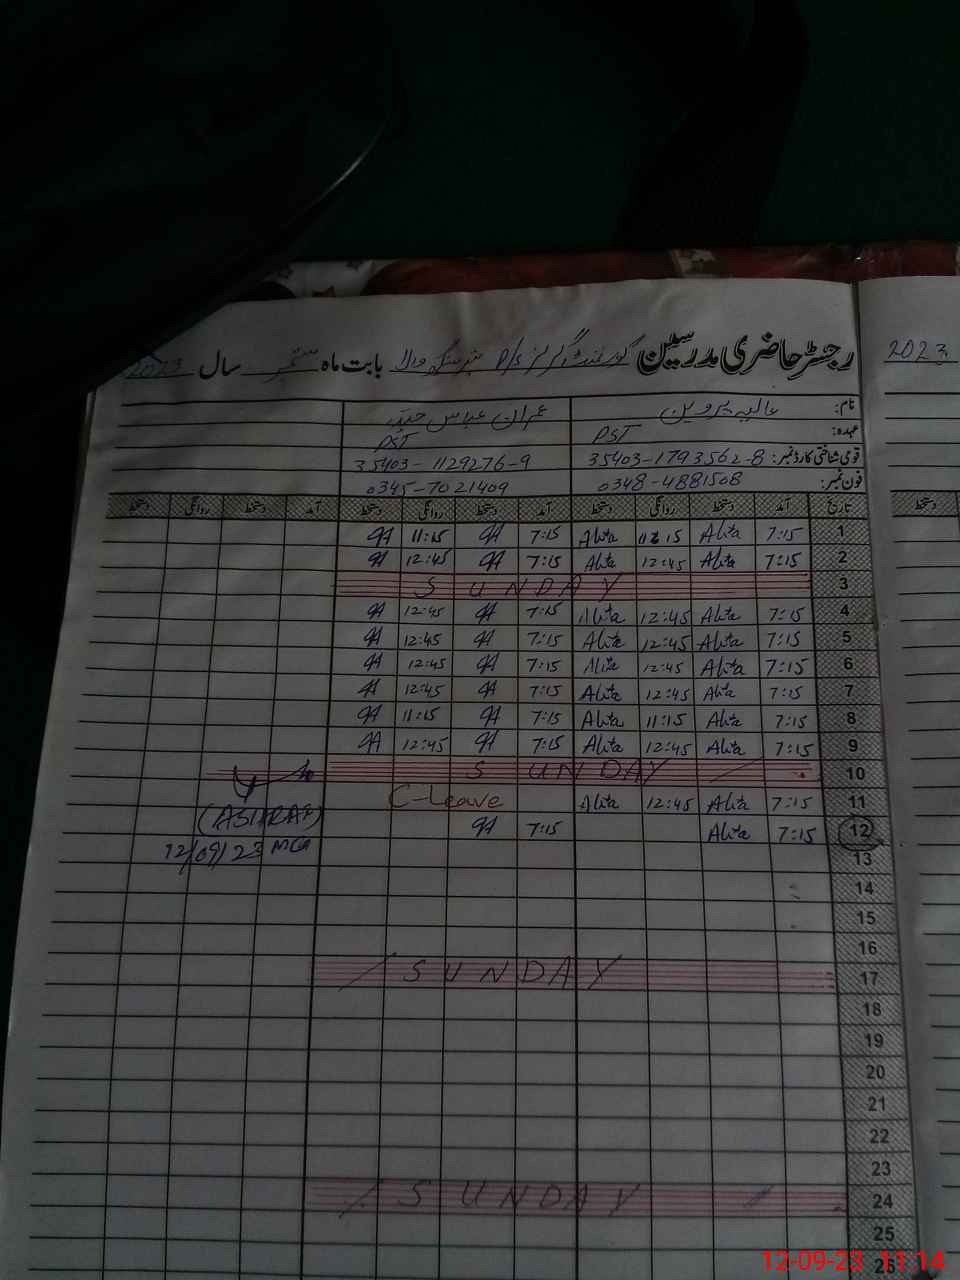 رجسٹر حاضری مدرسین گورنمنٹ گرلز P/S سنگھ والا بابت ماہ ستمبر سال 2023
2023
نام: عالیہ پروین عمران عباس حیدر
عہدہ: PST PST
قومی شناختی کارڈ نمبر: 35403-1793562-8 35403-1129276-9
فون نمبر: 0348-4881508 0345-7021409
تاریخ آمد دستخط روانگی دستخط آمد دستخط روانگی دستخط آمد دستخط روانگی دستخط
دستخط
1 7:15 Alita 11:15 Alita 7:15 11:15
2 7:15 Alita 12:45 Alita 7:15 12:45
3 SUNDAY
4 7:15 Alita 12:45 Alita 7:15 12:45
5 7:15 Alita 12:45 Alita 7:15 12:45
6 7:15 Alita 12:45 Alita 7:15 12:45
7 7:15 Alita 12:45 Alita 7:15 12:45
8 7:15 Alita 11:15 Alita 7:15 11:15
9 7:15 Alita 12:45 Alita 7:15 12:45
10 SUNDAY
11 7:15 Alita 12:45 Alita C-Leave
(ASHRAF)
12 7:15 Alita 7:15
12/09/23 MEA
13
14
15
16
17 SUNDAY
18
19
20
21
22
23
24 SUNDAY
25
26
12-09-23 11:14